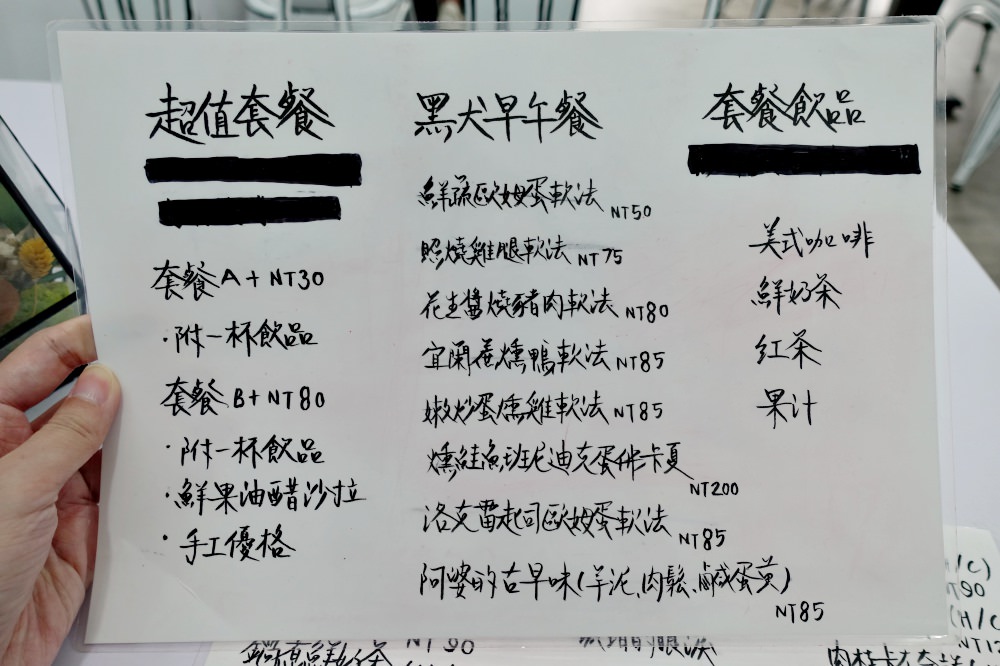 超值套餐
套餐A+NT30
·附一杯飲品
套餐B+NT80
·附一杯飲品
·鮮果油醋沙拉
·手工優格
黑犬早午餐
鮮蔬歐姆蛋軟法 NT50
照燒雞腿軟法 NT75
花生醬燒豬肉軟法 NT80
宜蘭蔥燻鴨軟法 NT85
嫩炒蛋燻雞軟法 NT85
燻鮭魚班尼迪克蛋佛卡夏
NT200
洛克茴起司歐姆蛋軟法 NT85
阿婆的古早味(芋泥、肉鬆、鹹蛋黃)
NT85
套餐飲品
美式咖啡
鮮奶茶
紅茶
果汁
NT90